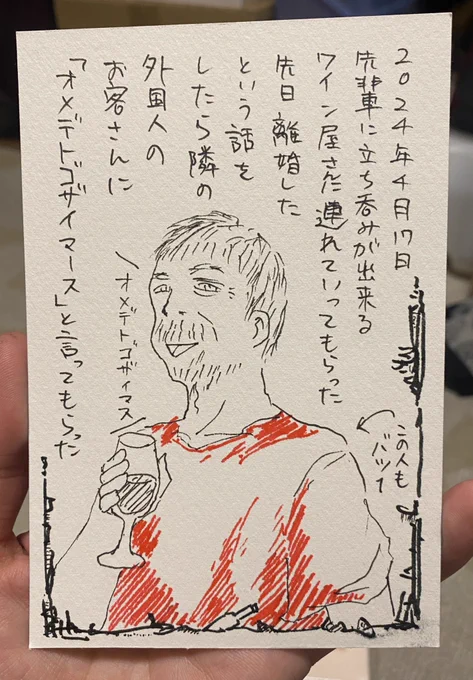 2024年4月17日
先輩に立ち呑みが出来る
ワイン屋さんに連れていってもらった
先日離婚した
という話を
したら隣の
外国人の
お客さんに
「オメデトゴザイマース」と言ってもらった
オメデトゴザイマス
この人も
バツ1